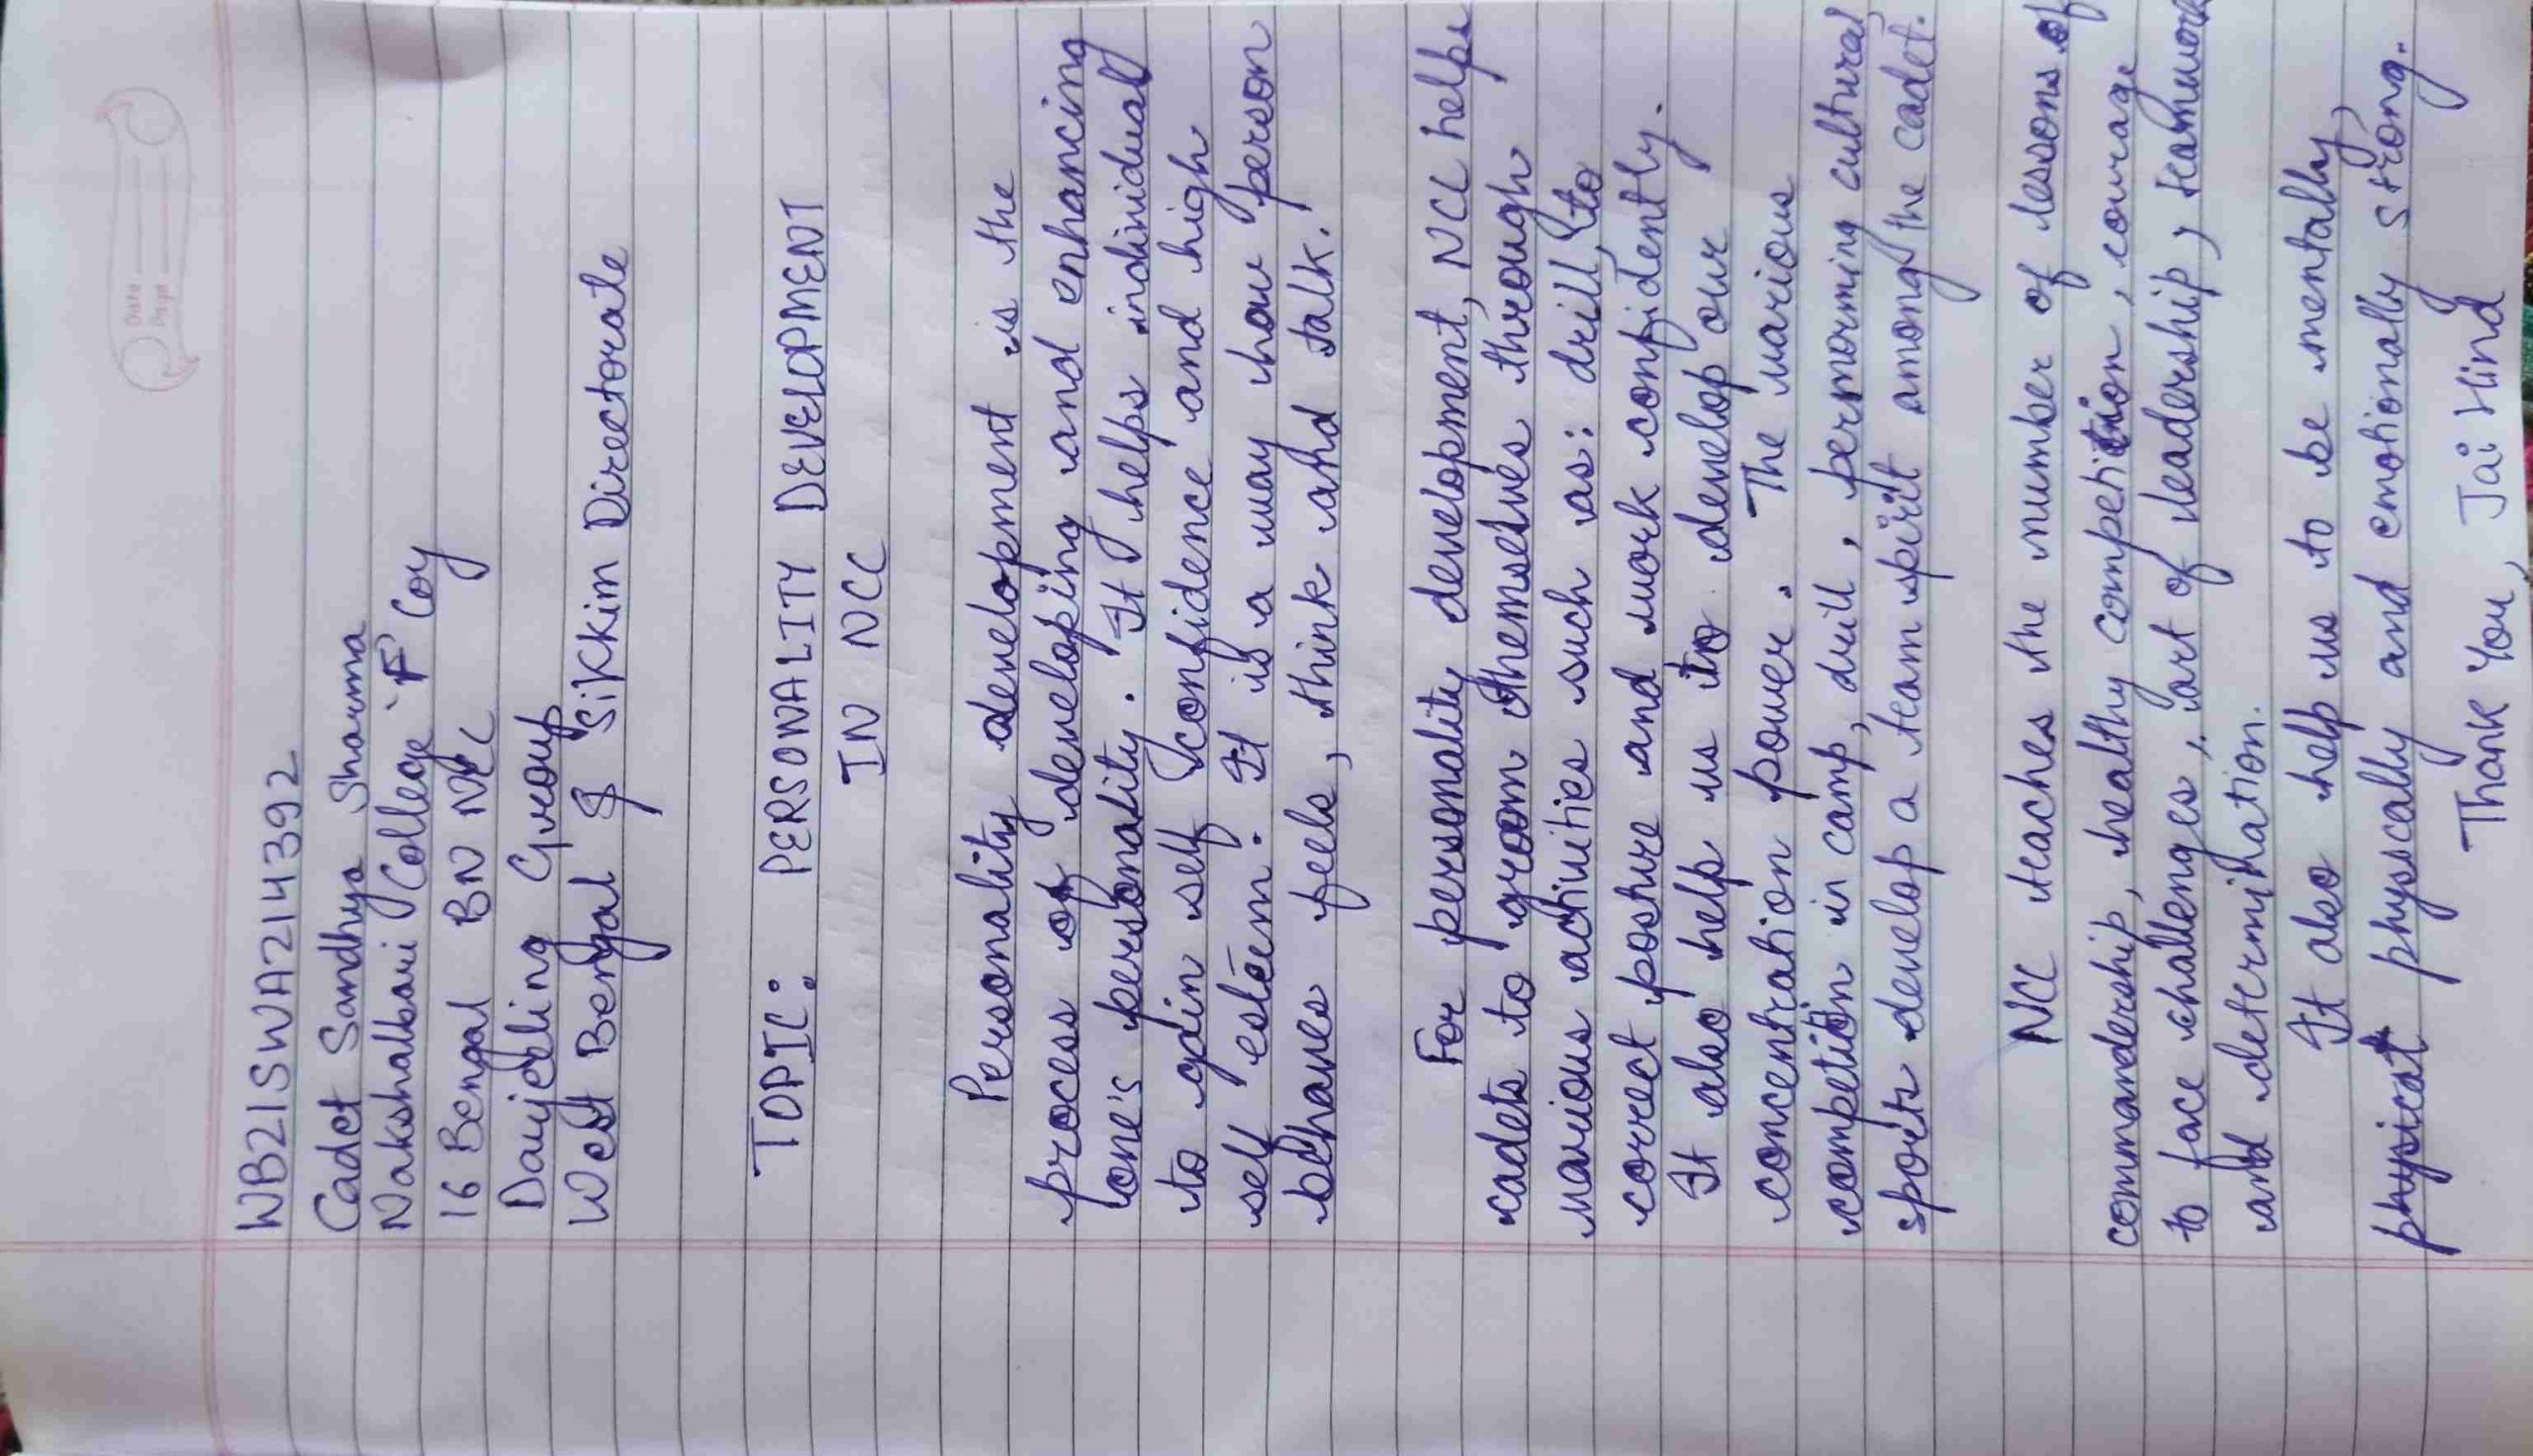 Date
Page
WB21SWA214392
Cadet Sandhya Sharma
Nakshalbari College 'F' Coy
16 Bengal BN NCC
Darjeeling Group
West Bengal & Sikkim Directorate
TOPIC: PERSONALITY DEVELOPMENT
IN NCC
Personality development is the
process of developing and enhancing
one's personality. It helps individual
to gain self confidence and high
self esteem. It is a way how person
behaves feels, think and talk.
For personality development, NCC helps
cadets to groom themselves through
various activities such as: drill, to
correct posture and work confidently.
It also help us to develop our
concentration power. The various
competition in camp, drill, permorming cultural
sports develop a team spirit among the cadet.
NCC teaches the number of lessons of
commandership, healthy competition, courage
to face challenges, art of leadership, teamwork
and determination.
It also help us to be mentally,
physically and emotionally strong.
Thank You, Jai Hind